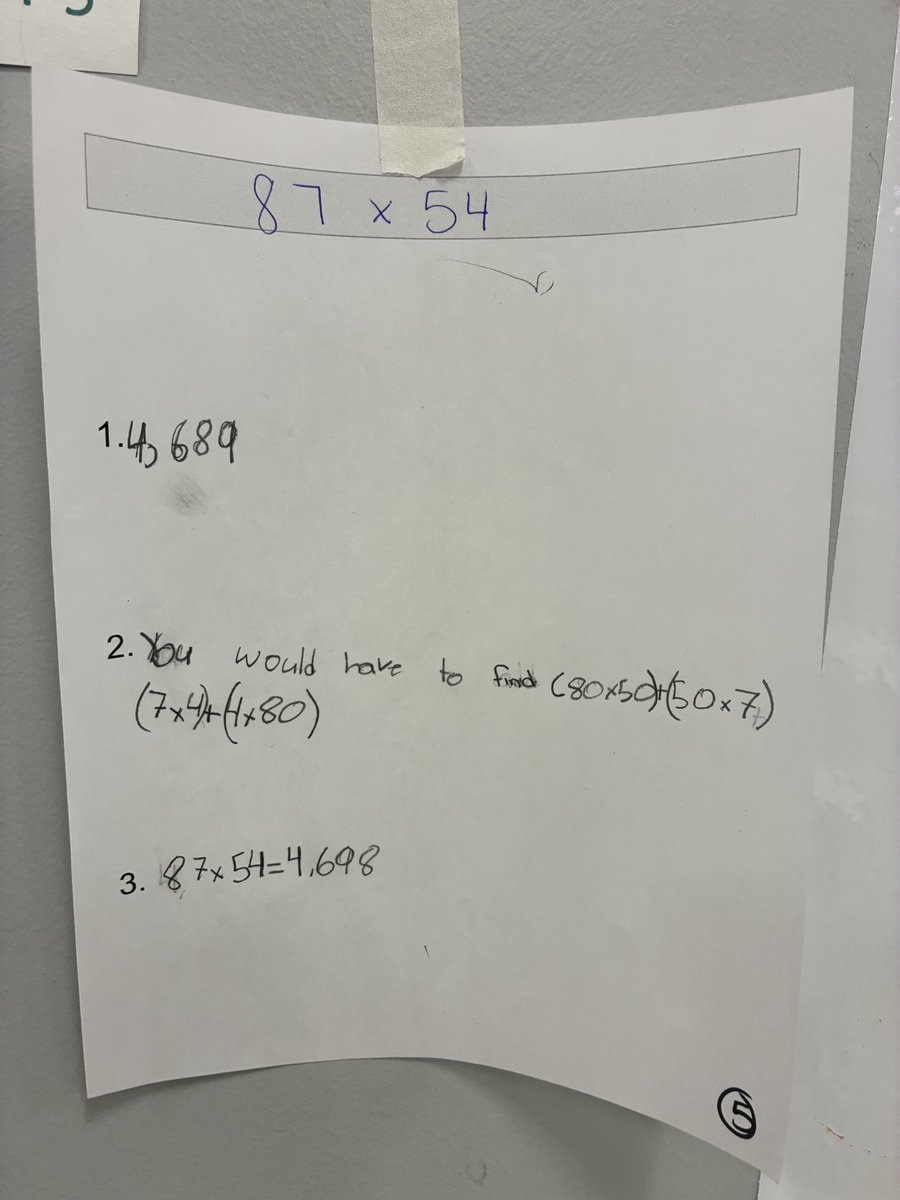 87 x 54
1. 4,689
2. You would have to find (80x50)+(50x7)
(7x4)+(4x80)
3. 87x54=4,698
5